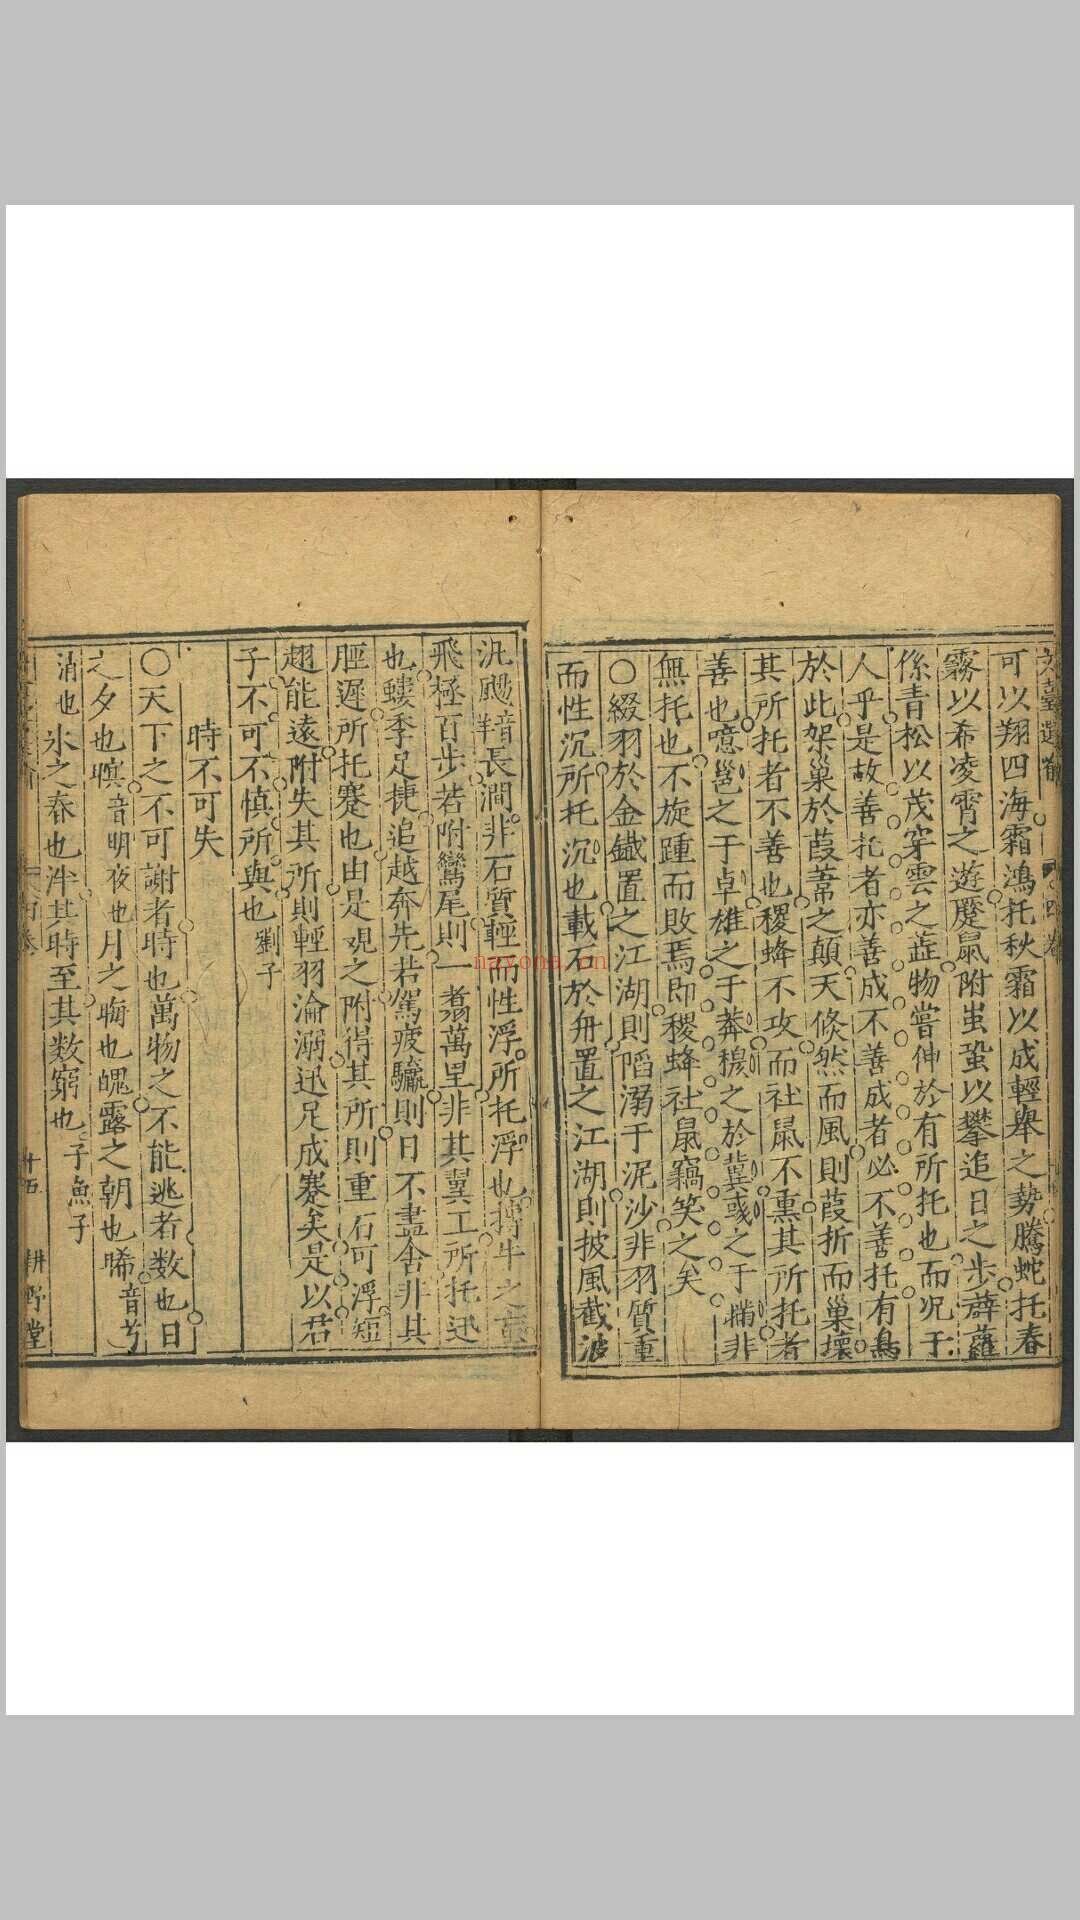 可以翔四海霜鴻托秋霜以成輕舉之勢騰蛇托春
霧以希凌霄之遊蹷鼠附蛩蛩以攀追日之步薜蘿
係青松以茂穿雲之蓝物嘗伸於有所托也而况于
人乎是故善托者亦善成不善成者必不善托有鳥
於此架巢於葭葦之顛天倏然而風則葭折而巢壞
其所托者不善也稷蜂不攻而社鼠不熏其所托者
善也噫邕之于卓雄之于莽穆之於冀彧之于瞞非
無托也不旋踵而敗焉即稷蜂社鼠竊笑之矣
○綴羽於金鐡置之江湖則陷溺于泥沙非羽質重
而性沉所托沉也載石於舟置之江湖則披風截波
汎颺長澗非石質輕而性浮所托浮也搏牛之䖟
飛極百步若附鸞尾則一翥萬里非其翼工所托迅
也樓季足捷追越奔先若駕疲驢則日不盡舍非其
脛遲所托蹇也由是观之附得其所則重石可浮短
翅能遠附失其所則輕羽淪溺迅足成蹇矣是以君
子不可不慎所與也劉子
時不可失
○天下之不可謝者時也萬物之不能逃者数也日
之夕也暝音明夜也月之晦也魄露之朝也晞音兮
消也氷之春也泮其時至其数窮也子魚子
十五 耕野堂
hayona.cn